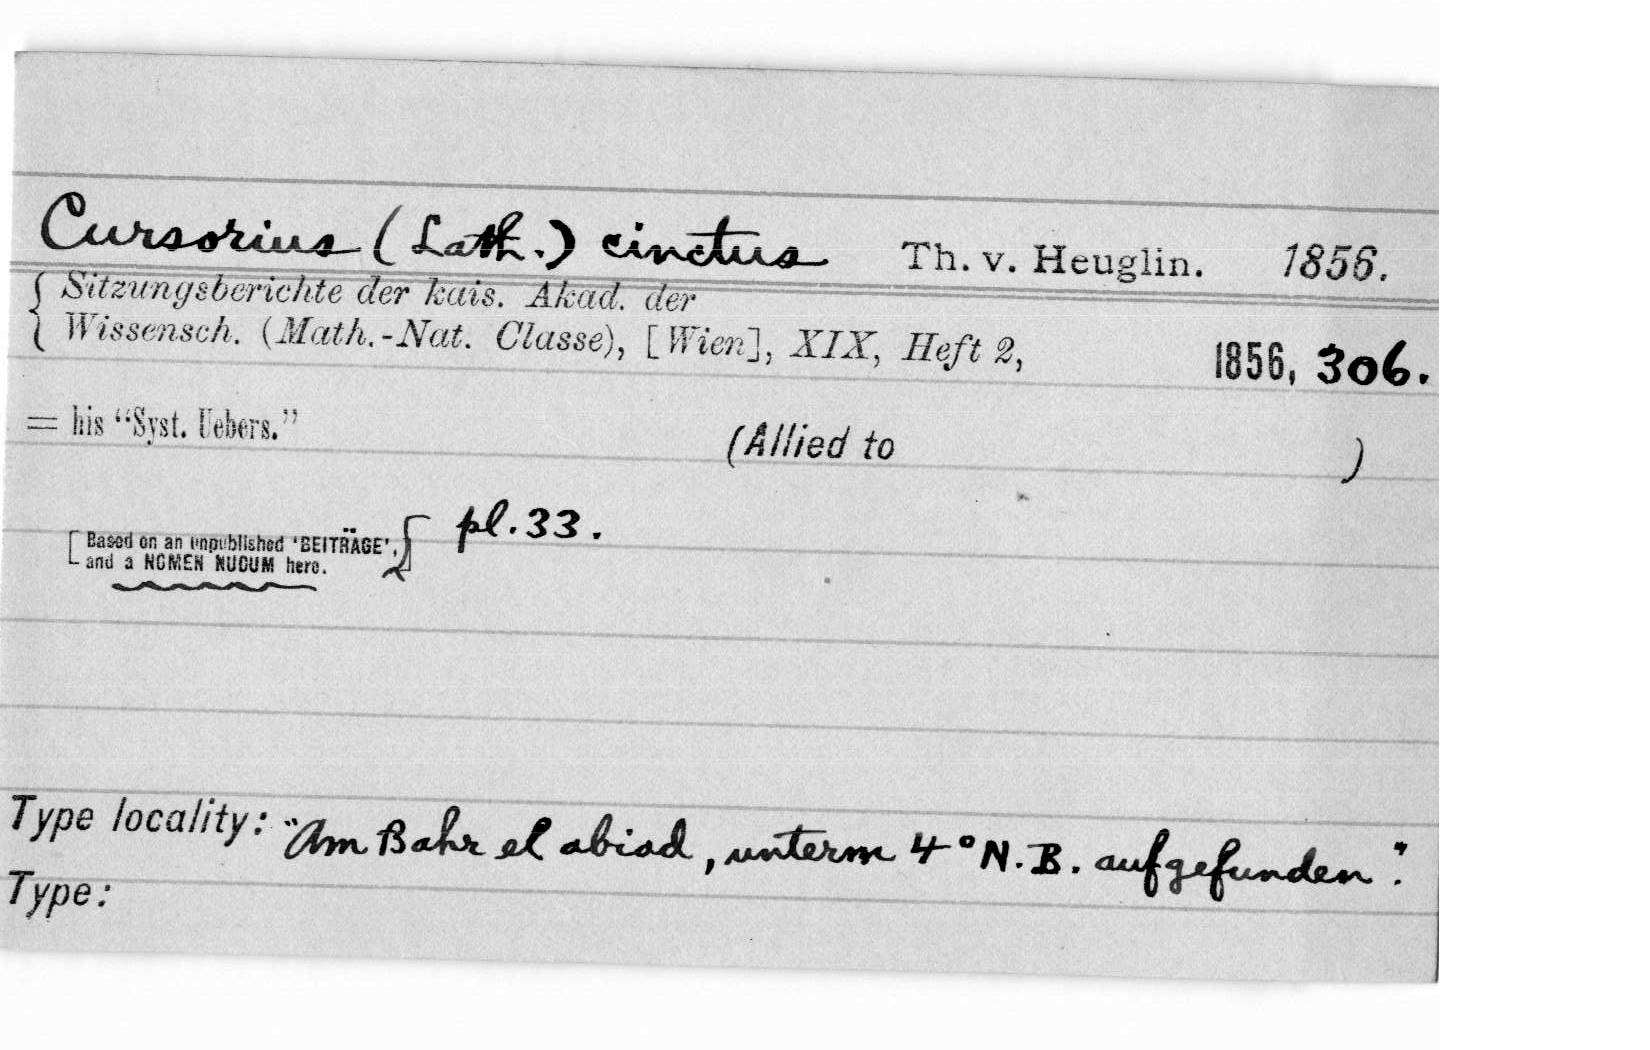 Cursorius (Lath.) cinctus Th. v. Heuglin. 1856.
Sitzungsberichte der kais. Akad. der
Wissensch. (Math.-Nat. Classe), [Wien], XIX, Heft 2, 1856, 306.
= his “Syst. Uebers.” (Allied to )
pl. 33.
[Based on an unpublished 'BEITRÄGE',
and a NOMEN NUDUM here.]
Type locality: "Am Bahr el abiad, unterm 4° N. B. aufgefunden".
Type: